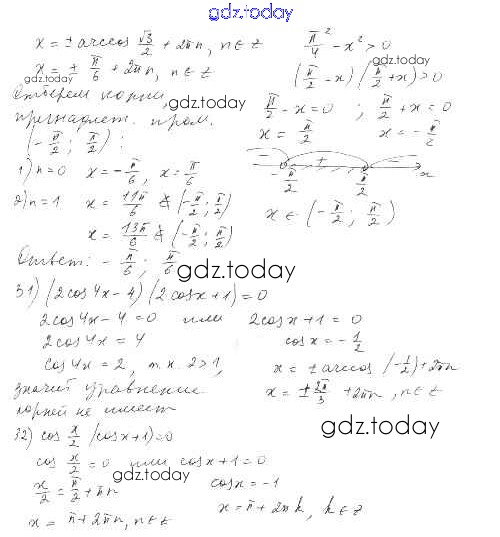 gdz.today
x = ± arccos √3/2 + 2πn, n ∈ z
x = ± π/6 + 2πn, n ∈ z
gdz.today
Отберем корни, gdz.today
принадлеж. пром.
(-π/2; π/2):
1) n=0 x = -π/6, x = π/6
2) n=1 x = 11π/6 ∉ (-π/2; π/2)
x = 13π/6 ∉ (-π/2; π/2)
Ответ: -π/6; π/6
π²/4 - x² > 0
gdz.today
(π/2 - x)(π/2 + x) > 0
π/2 - x = 0 ; π/2 + x = 0
x = π/2 x = -π/2
- + -
-π/2 π/2 x
x ∈ (-π/2; π/2)
gdz.today
31) (2cos4x-4)(2cosx+1)=0
2cos4x-4=0 или 2cosx+1=0
2cos4x=4 cosx = -1/2
cos4x=2, т.к. 2>1, x = ± arccos(-1/2)+2πn
значит уравнение x = ± 2π/3 + 2πn, n ∈ z
корней не имеет
gdz.today
32) cos x/2 (cosx+1)=0
cos x/2 = 0 или cosx+1=0
gdz.today
x/2 = π/2 + πn cosx = -1
x = π+2πn, n ∈ z x = π+2πk, k ∈ z